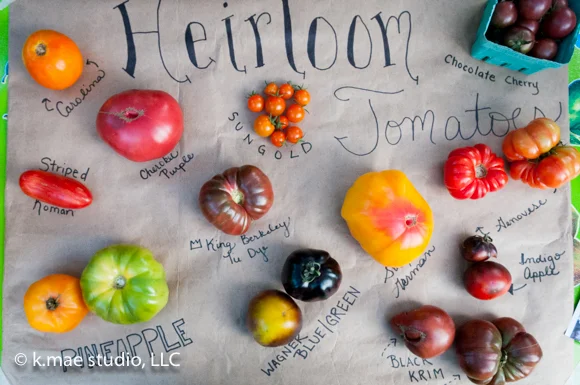 Heirloom
Tomatoes
Chocolate Cherry
Carolina
Cherokee
Purple
SUNGOLD
Striped
Roman
King Berkeley
Tie Dye
German
Genovese
Indigo
Apple
WAGNER
BLUE/GREEN
BLACK
KRIM
PINEAPPLE
© k.mae studio, LLC